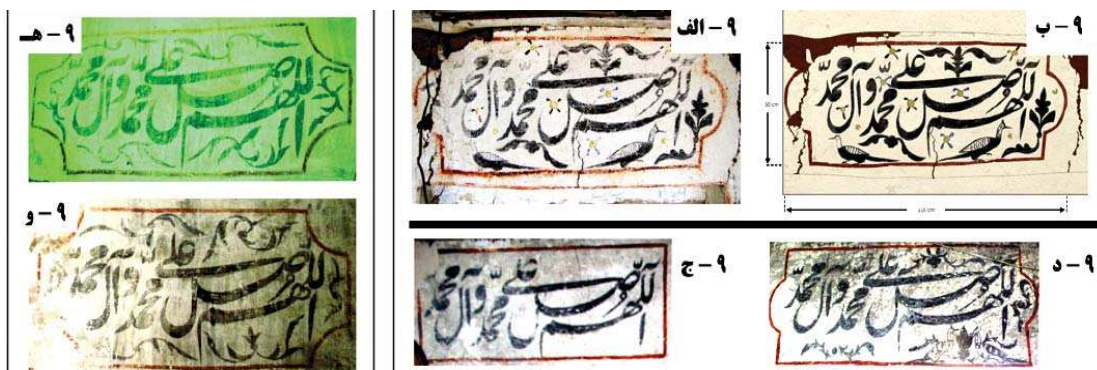 ۹ – ب
اللهم صل علی محمد وآل محمد
۹ – الف
اللهم صل علی محمد وآل محمد
۹ – د
اللهم صل علی محمد وآل محمد
۹ – ج
اللهم صل علی محمد وآل محمد
۹ – هـ
اللهم صل علی محمد وآل محمد
۹ – و
اللهم صل علی محمد وآل محمد